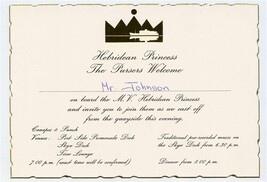 Hebridean Princess
The Pursers Welcome
Mr. Johnson
on board the M.V. Hebridean Princess
and invite you to join them as we cast off
from the quayside this evening.
Canapés & Punch
Venue: Port Side Promenade Deck
Skye Deck
Tiree Lounge
7.00 p.m. (exact time will be confirmed)
Traditional pre-recorded music on
the Skye Deck from 6.30 p.m.
Dinner from 8.00 p.m.